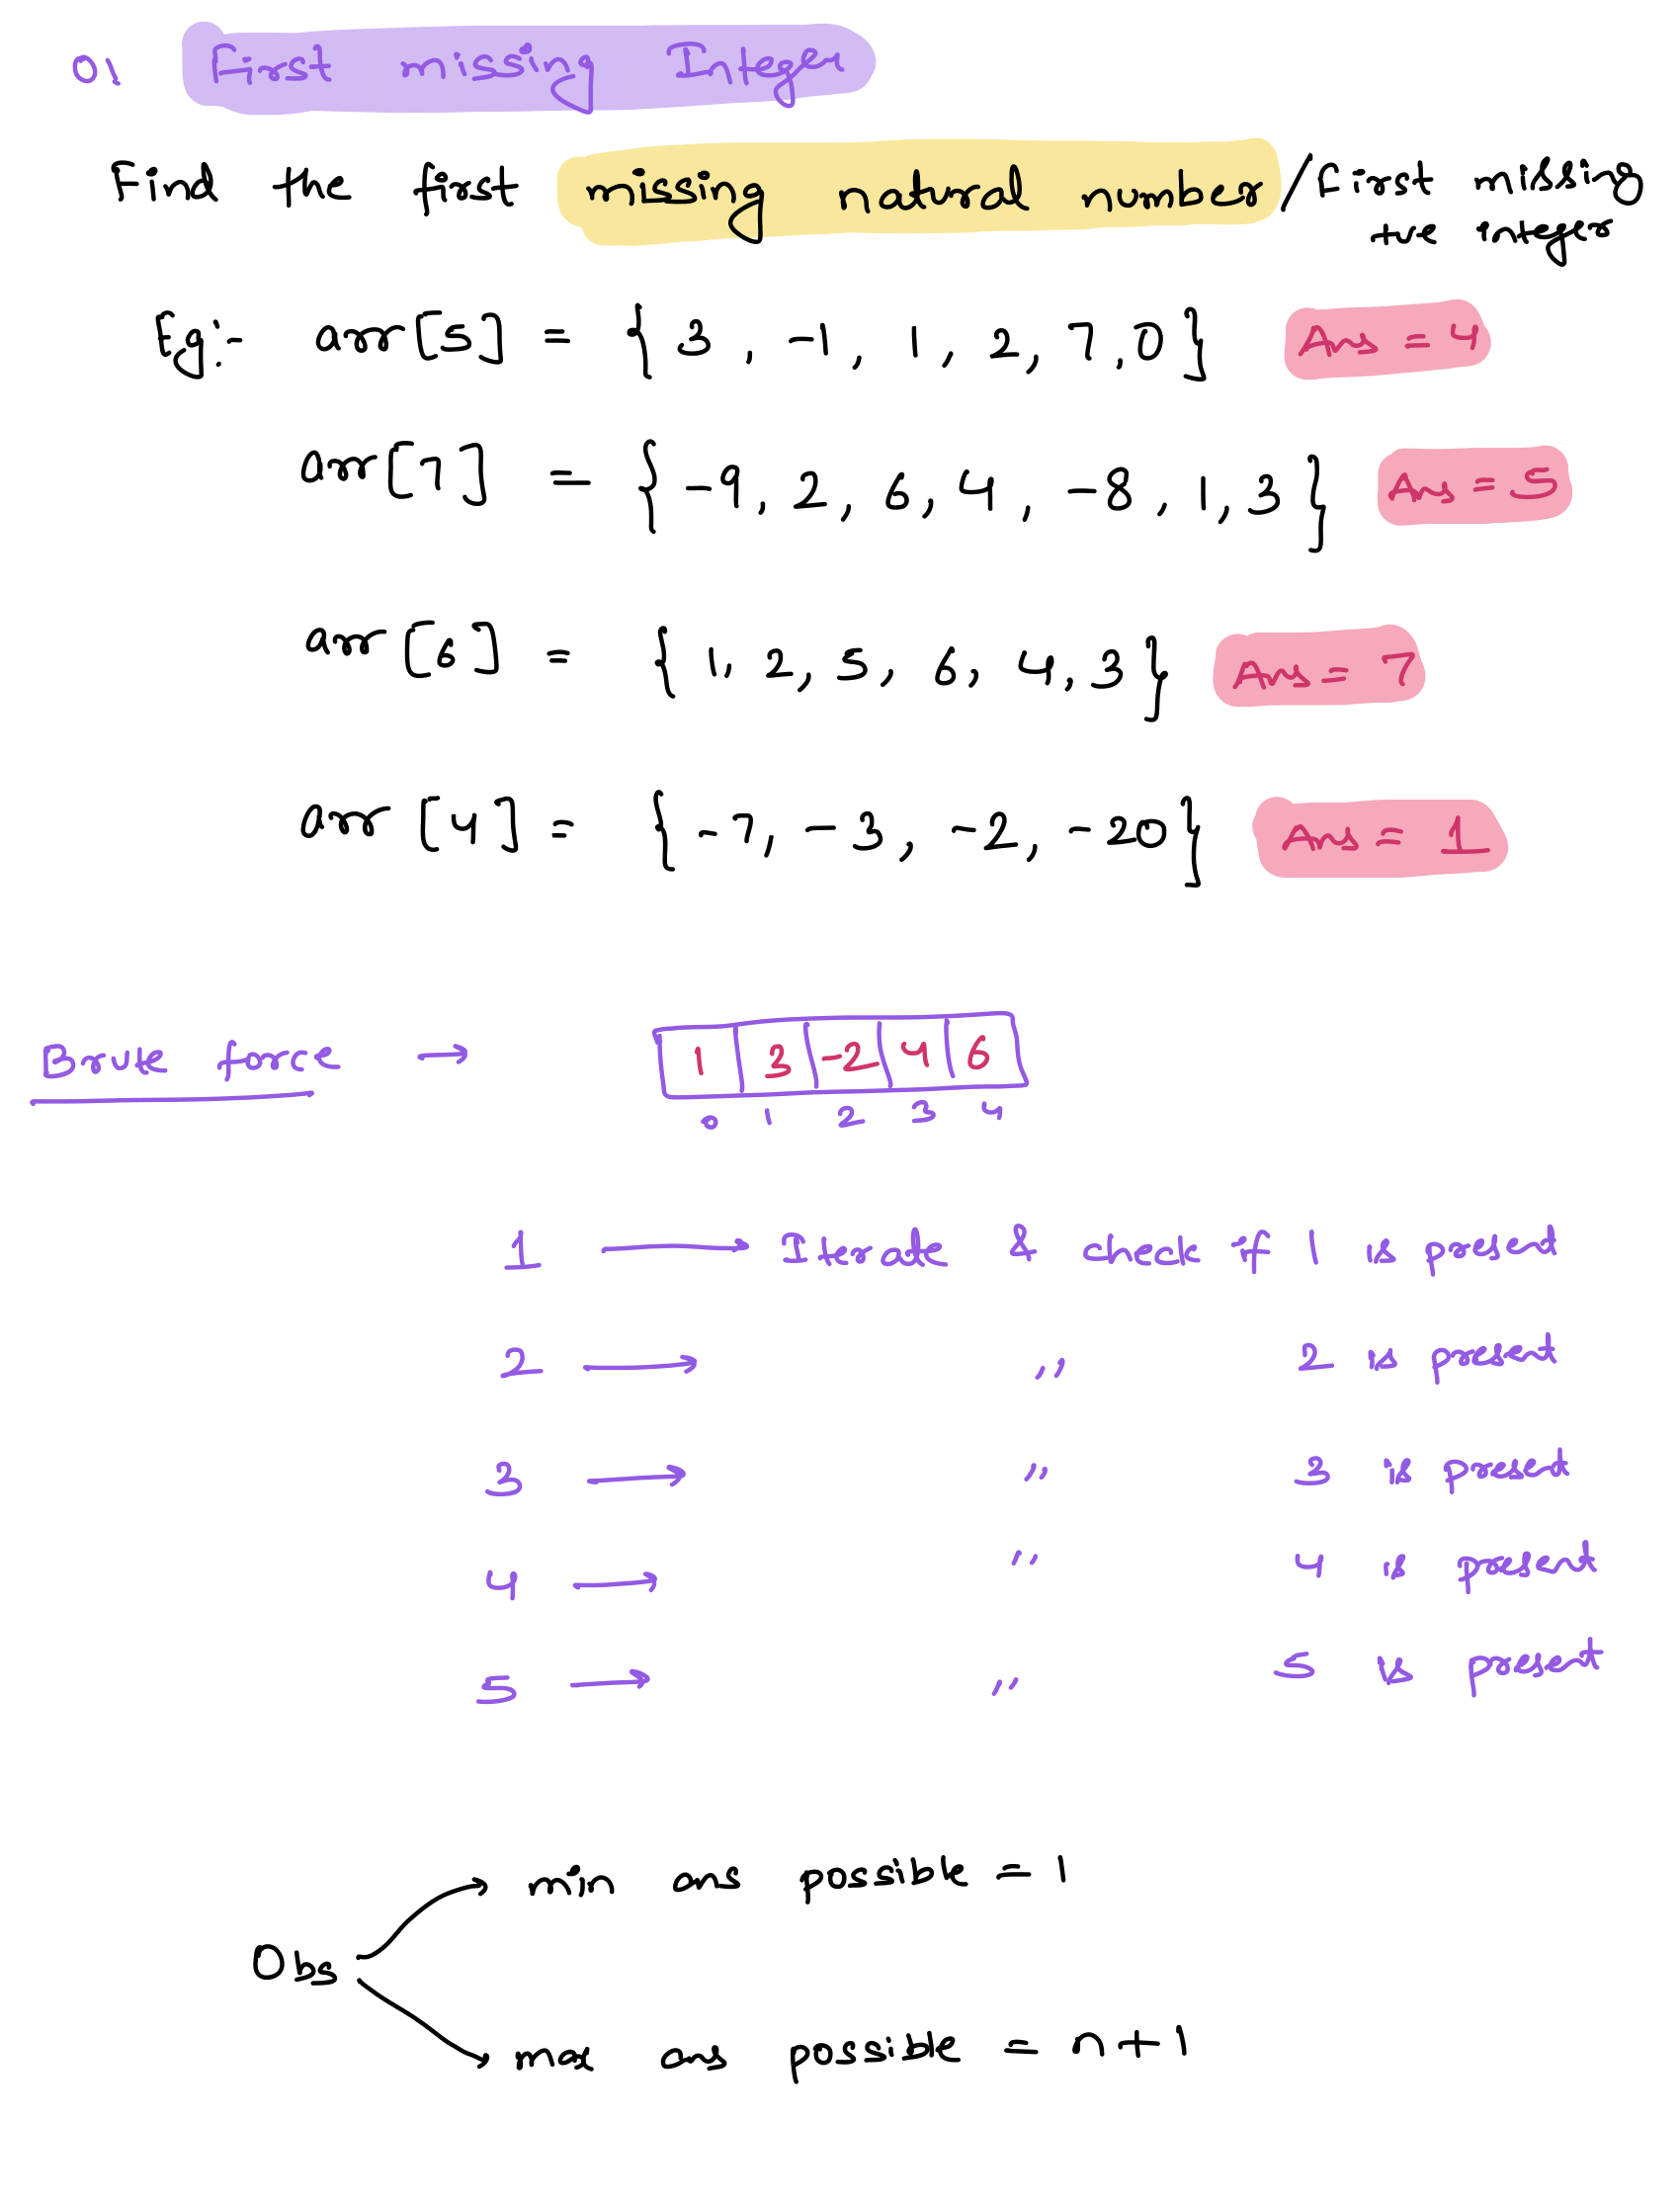 01 First missing Integer
Find the first missing natural number / first missing
+ve integer
Eg:- arr[5] = { 3, -1, 1, 2, 7, 0 } Ans = 4
arr[7] = { -9, 2, 6, 4, -8, 1, 3 } Ans = 5
arr[6] = { 1, 2, 5, 6, 4, 3 } Ans = 7
arr[4] = { -7, -3, -2, -20 } Ans = 1
Brute force → 1 3 -2 4 6
0 1 2 3 4
1 → Iterate & check if 1 is present
2 → ,, 2 is present
3 → ,, 3 is present
4 → ,, 4 is present
5 → ,, 5 is present
min ans possible = 1
Obs
max ans possible = n+1